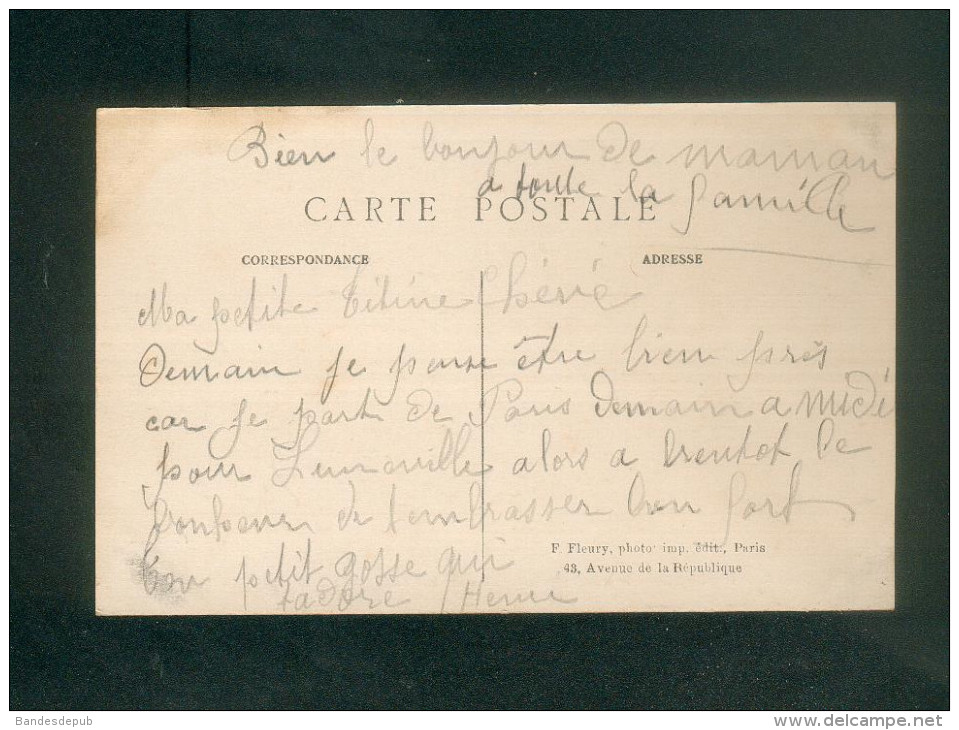 Bien le bonjour de maman
a toute la famille
CARTE POSTALE
CORRESPONDANCE
ADRESSE
Ma petite Titine Chérie
Demain je pense être bien près
car je parts de Paris demain a midi
pour Luneville alors a bientot le
bonheur de t'embrasser bien fort
ton petit gosse qui
t'adore Henri
F. Fleury, photo. imp. édit., Paris
43, Avenue de la République
Bandesdepub
www.delcampe.net